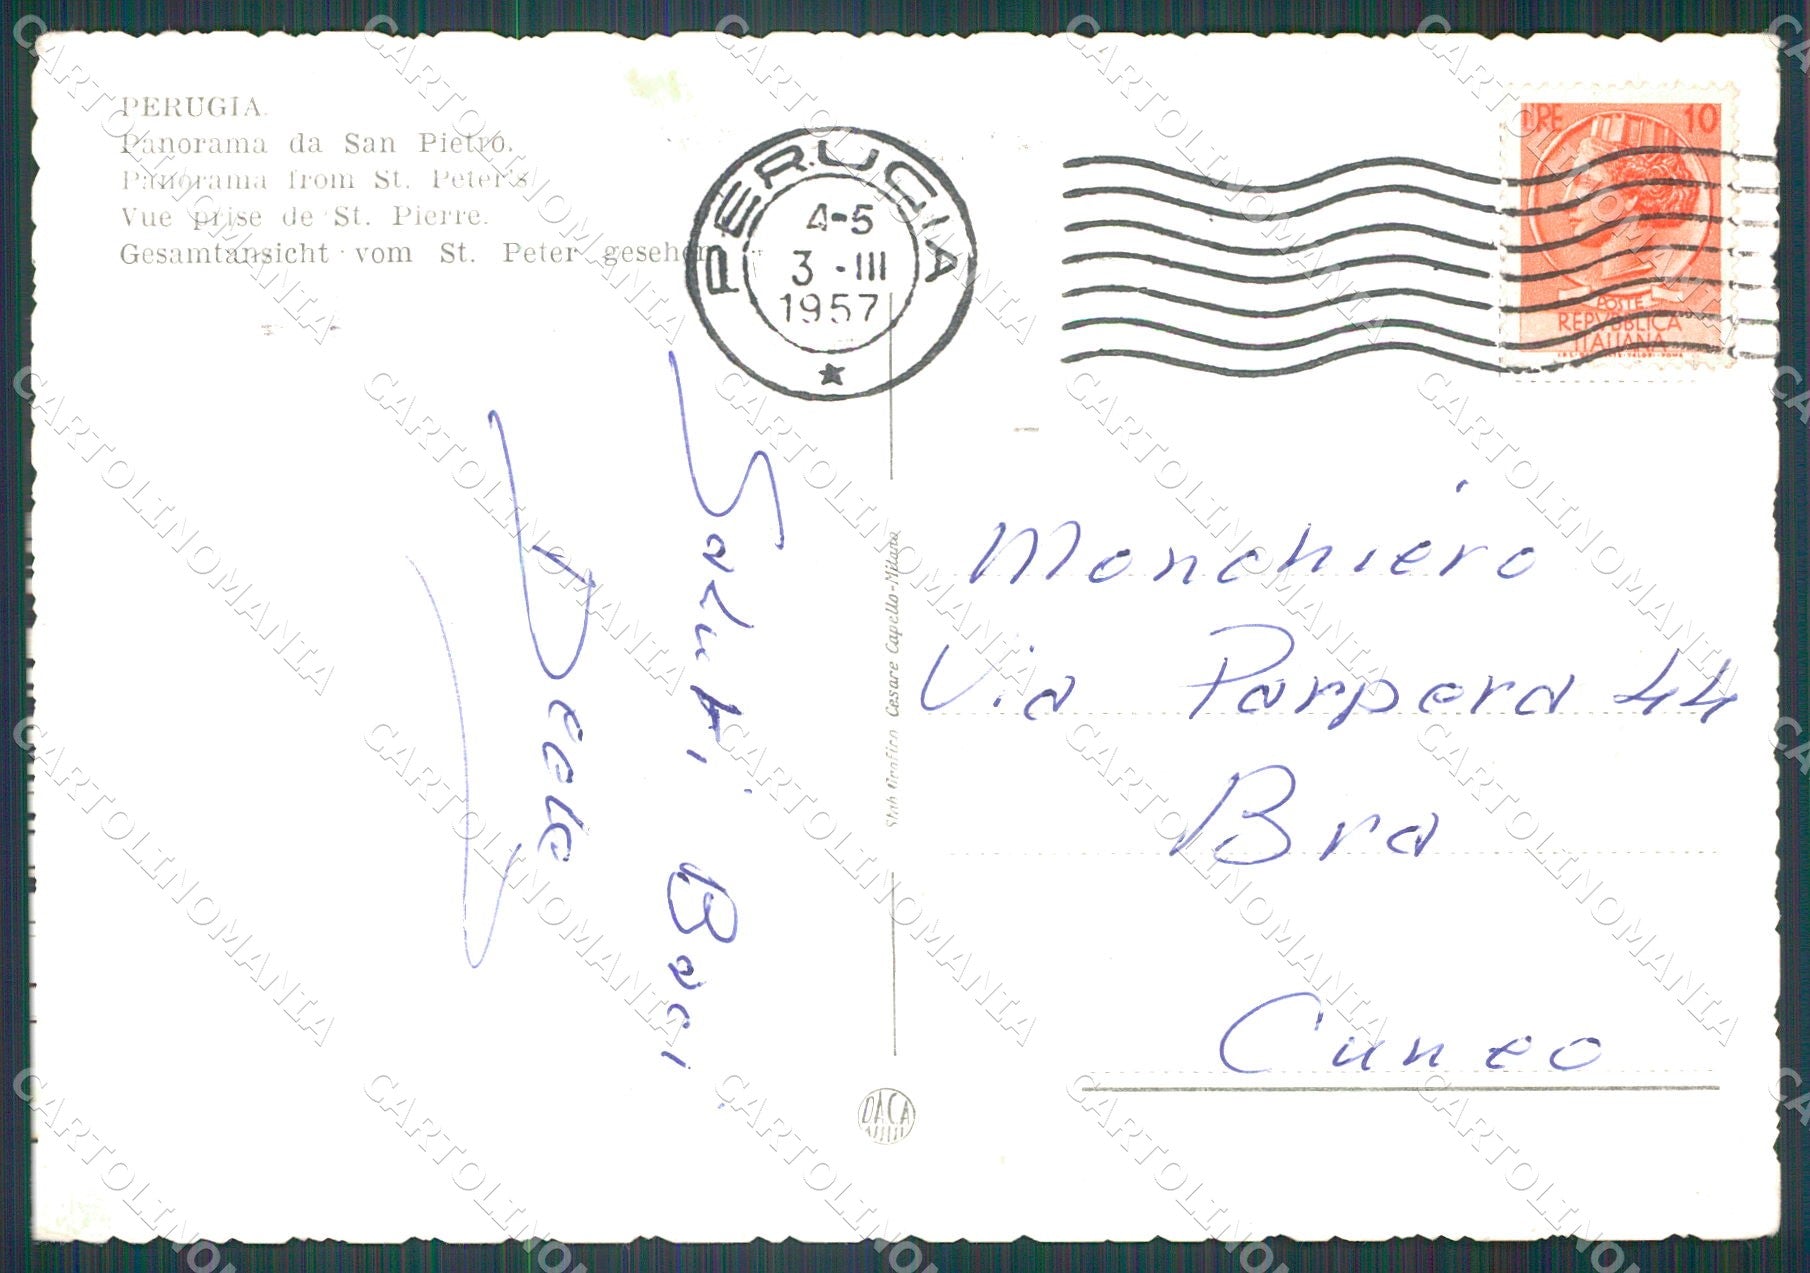 PERUGIA.
Panorama da San Pietro.
Panorama from St. Peter's
Vue prise de St. Pierre.
Gesamtansicht vom St. Peter gesehen
PERUGIA
4-5
3 -III
1957
LIRE 10
POSTE
REPVBBLICA
ITALIANA
Saluti Baci
Stab Grafico Cesare Capello-Milano
Monchiero
Via Parpera 44
Bra
Cuneo
DACA
CARTOLINOMANIA